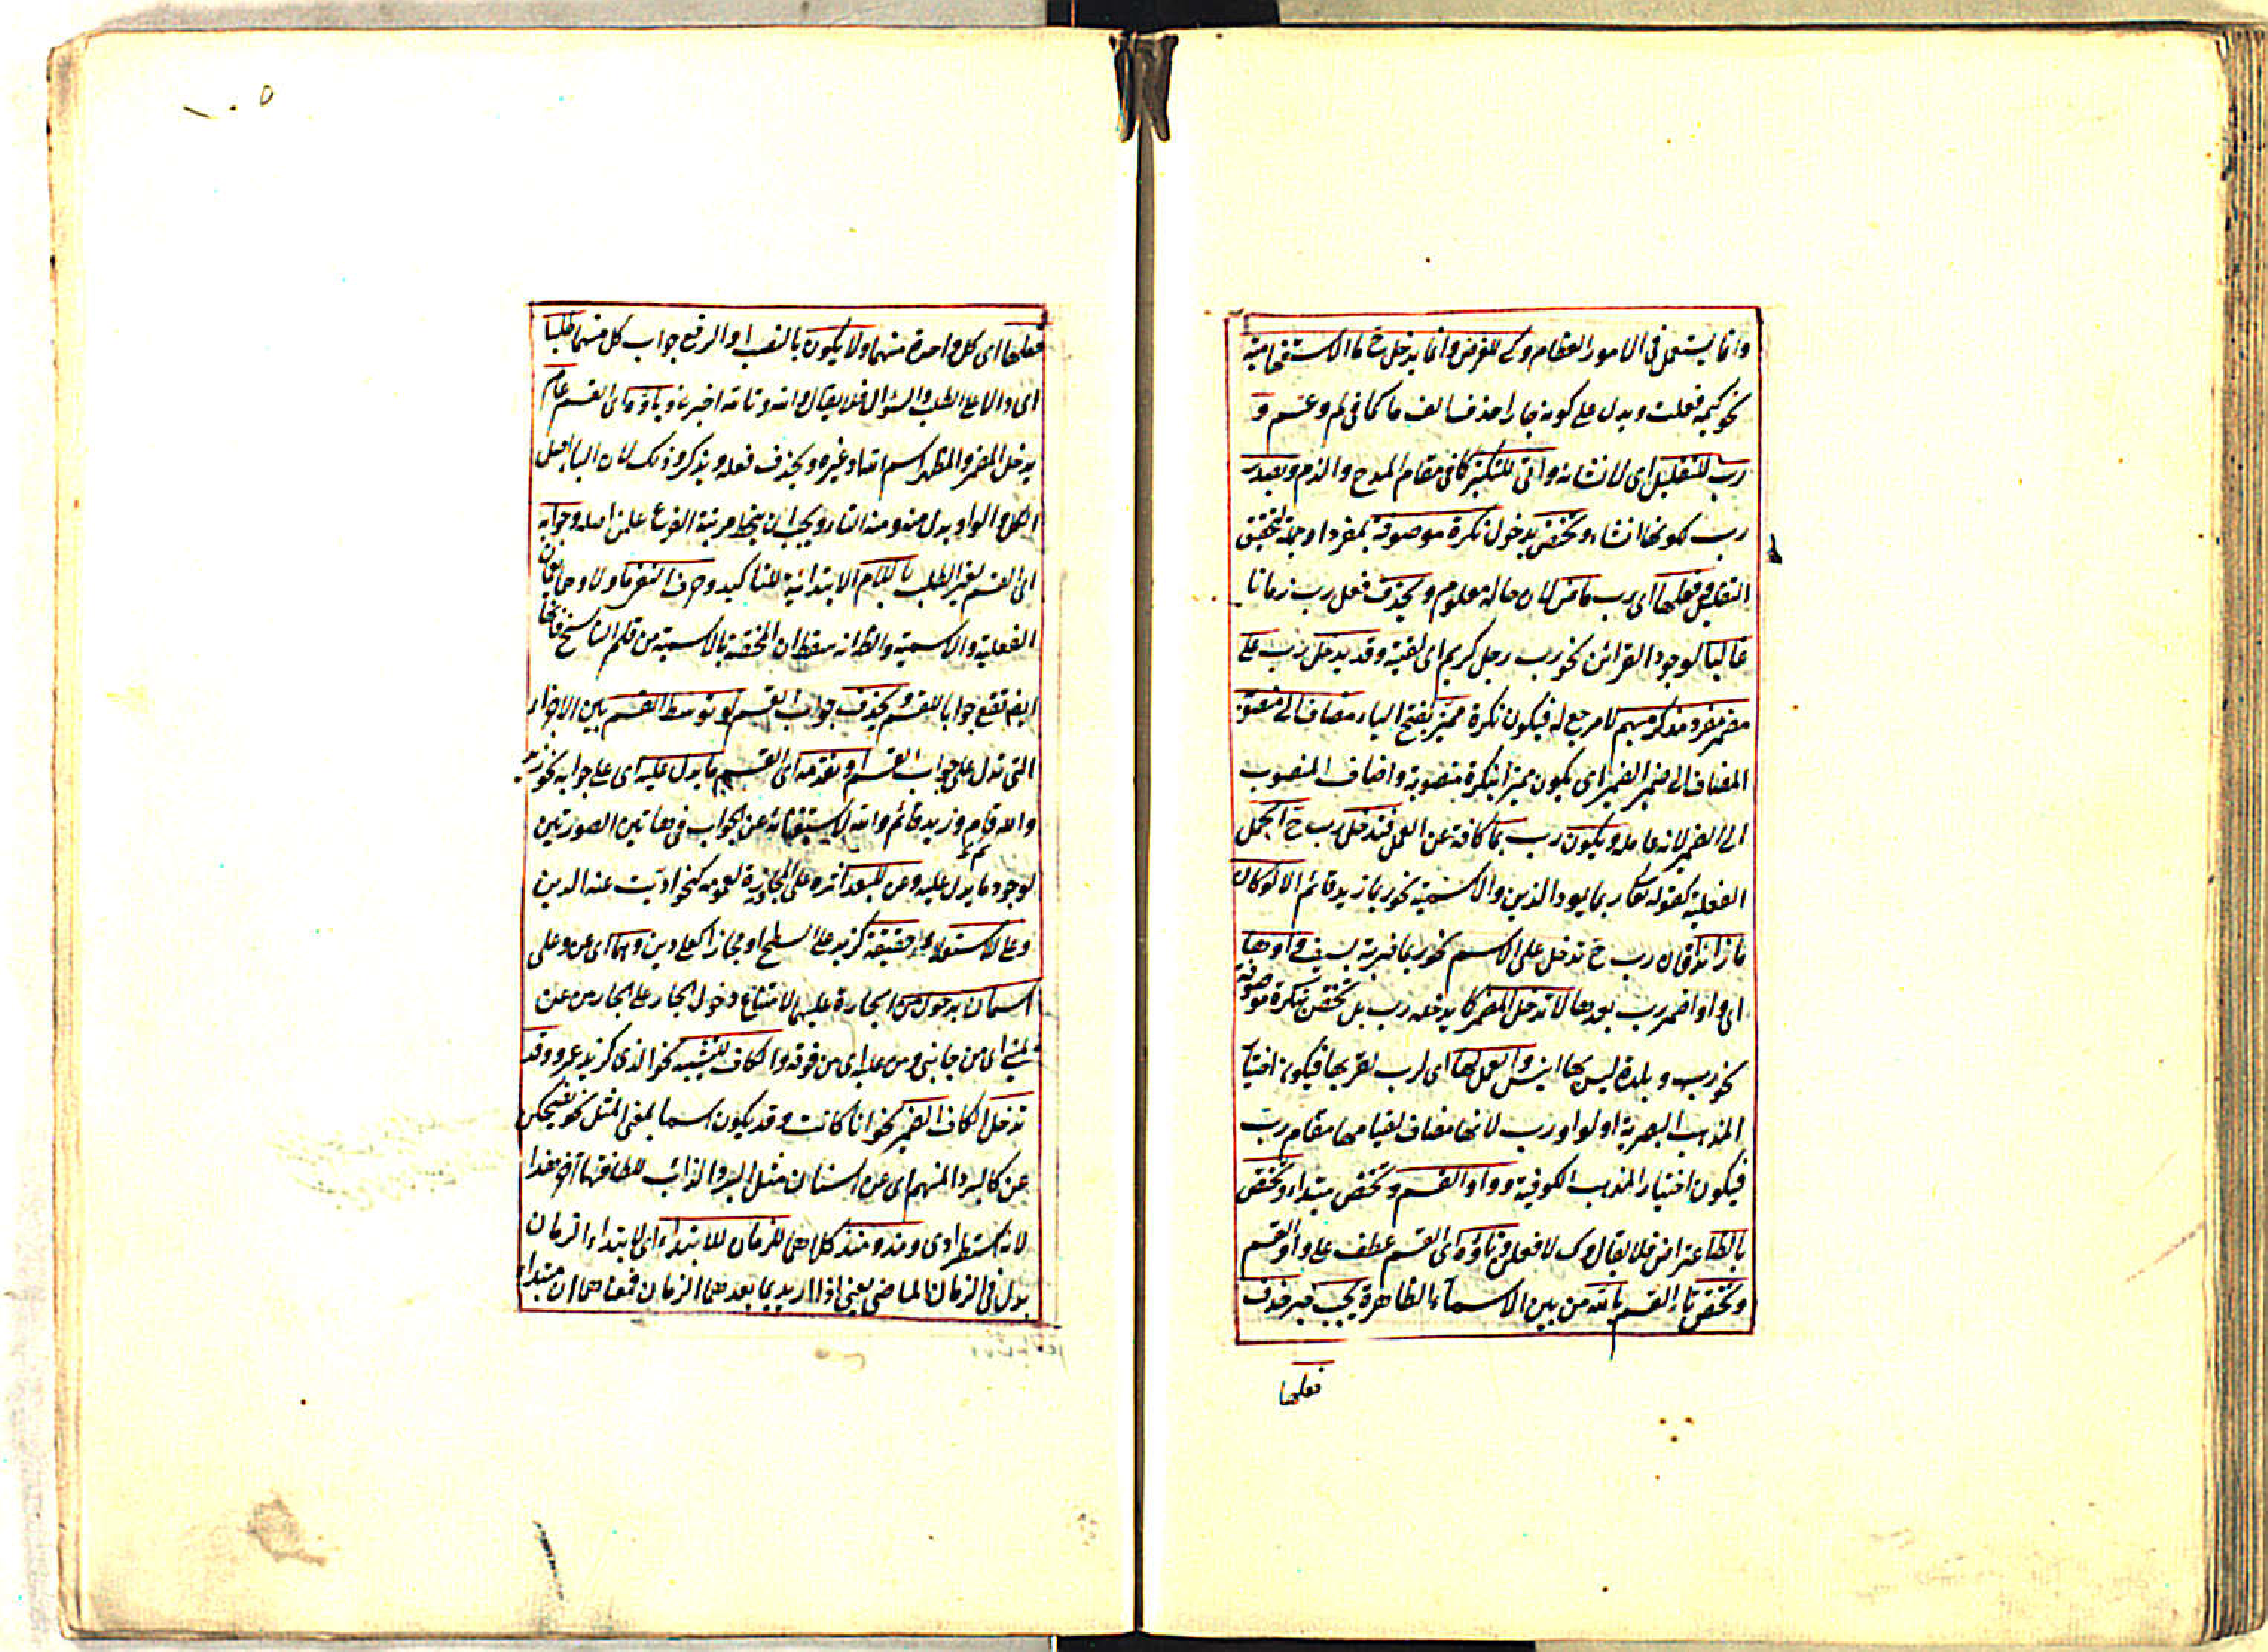 وانما يستعمل فى الامور العظام وكى للغرض وانما يدخل ح ما الاستفهامية
نحو كيمه فعلت ويدل على كونه جارا حذف الف ما كما فى لم وعم و
رب للتقليل اى لانشائه واتى للتكثير كما فى مقام المدح والذم ويصدر
رب لكونها انشاء وتختص بدخول نكرة موصوفة بمفرد او جملة لتحقيق
التقليل وفعلها اى رب ماض لان حاله معلوم ويحذف فعل رب زمانا
غالبا لوجود القرائن نحو رب رجل كريم اى لقيته وقد يدخل رب على
مضمر مفرد مذكر مبهم لا مرجع له فيكون نكرة مميز بفتح الياء مضاف الى منصوبة
المضاف الى ضمير الضمير اى يكون مميزا بنكرة منصوبة واضاف المنصوب
الى الضمير لانه عامله ويكون رب بما كافة عن العمل فتدخل رب ح الجمل
الفعلية كقوله تعالى ربما يود الذين والاسمية نحو ربما زيد قائم الا لو كان
ما زائدا فان رب ح تدخل على الاسم نحو ربما ضربة بسيف وواوها
اى واو اضمر رب بعدها لا تدخل المضمر كما يدخله رب بل تختص بنكرة موصوفة
نحو رب وبلدة ليس بها انيس والعمل لها اى لرب لقربها فيكون اختيار
المذهب البصرية او لواو رب لانها مضاف لقيامها مقام رب
فيكون اختيار المذهب الكوفية وواو القسم وتختص مبتداء وتختص
بالظاهر فلا يقال وك لافعلن وتاؤه اى القسم عطف على واو القسم
وتختص تاء القسم بالله من بين الاسماء الظاهرة يجب فيه حذف
فعلها
فعلها اى كل واحدة منهما ولا يكون بالنصب او الرفع جواب كل منهما طلبا
اى دالا على الطلب والسؤال فلا يقال والله وتالله اخبرنى وباؤه اى القسم عام
يدخل المضمر والمظهر اسم الله او غيره ويحذف فعله ويذكر وذلك لان الباء اصل
الكل والواو بدل منه ومنه التاء ويجب ان ينحط مرتبة الفرع عن اصله وجوابه
اى القسم لغير الطلب باللام الابتدائية للتاكيد وحرف النفى ما ولا وهما يعمان
الفعلية والاسمية والظ انه سقط ان المختصة بالاسمية من قلم الناسخ فانها
ايضا تقع جوابا للقسم ويحذف جواب القسم لو توسط القسم بين الاجزاء
التى تدل على جواب القسم او تقدمه اى القسم ما يدل عليه اى على جوابه نحو زيد
والله قام وزيد قائم والله لاستغنائه عن الجواب فى هاتين الصورتين
لوجود ما يدل عليه وعن للبعد اثره على المجاوزة لعمومه كنحو اديت عنه الدين
وعلى للاستعلاء حقيقة كزيد على السطح او مجازا كعلى دين وهما اى عن وعلى
اسمان بدخول من الجارة عليهما لامتناع دخول الجار على الجار من عن
يمينى اى من جانبى ومن عليه اى من فوقه والكاف للتشبيه نحو الذى كزيد عمرو وقد
تدخل الكاف الضمير نحو انا كانت وقد يكون اسما بمعنى المثل نحو يضحكن
عن كالبرد المنهم اى عن اسنان مثل البرد الذائب للطافتها اخر هذا
لانه استطرادى ومذ ومنذ كلاهما للزمان للابتداء اى لابتداء الزمان
بدل فى الزمان الماضى يعنى اذا اريد بما بعدهما الزمان فمعناهما ان مبتداء